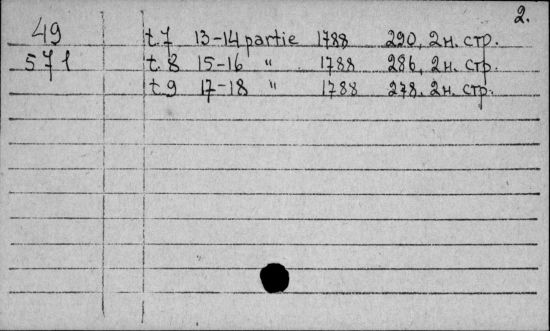 2.
49 t.7 13-14 partie 1788 290, 2н. стр.
571 t.8 15-16 " 1788 286, 2н. стр.
t.9 17-18 " 1788 278, 2н. стр.